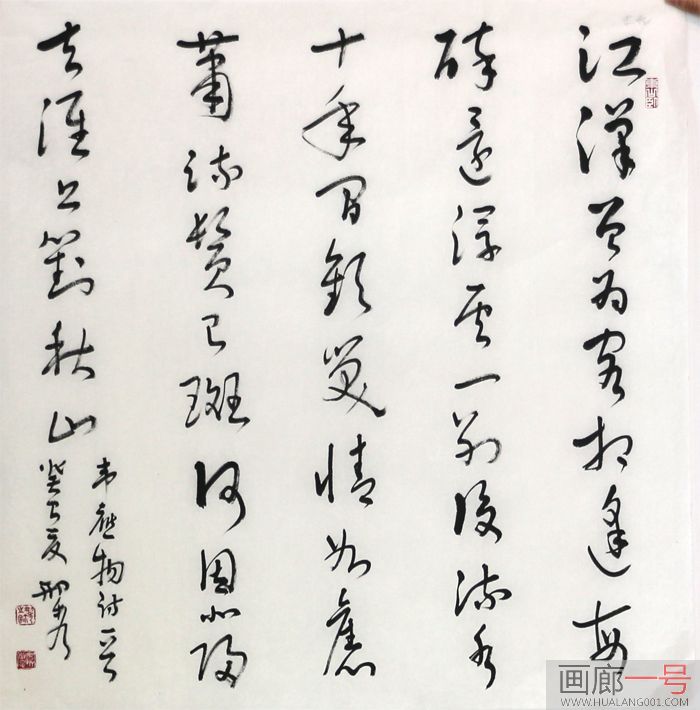 江漢曾為客相逢每
醉還浮雲一別後流水
十年間歡笑情如舊
蕭疏鬢已斑何因北歸
去淮上對秋山
韋應物詩一首
癸巳夏
画廊一号
WWW.HUALANG001.COM